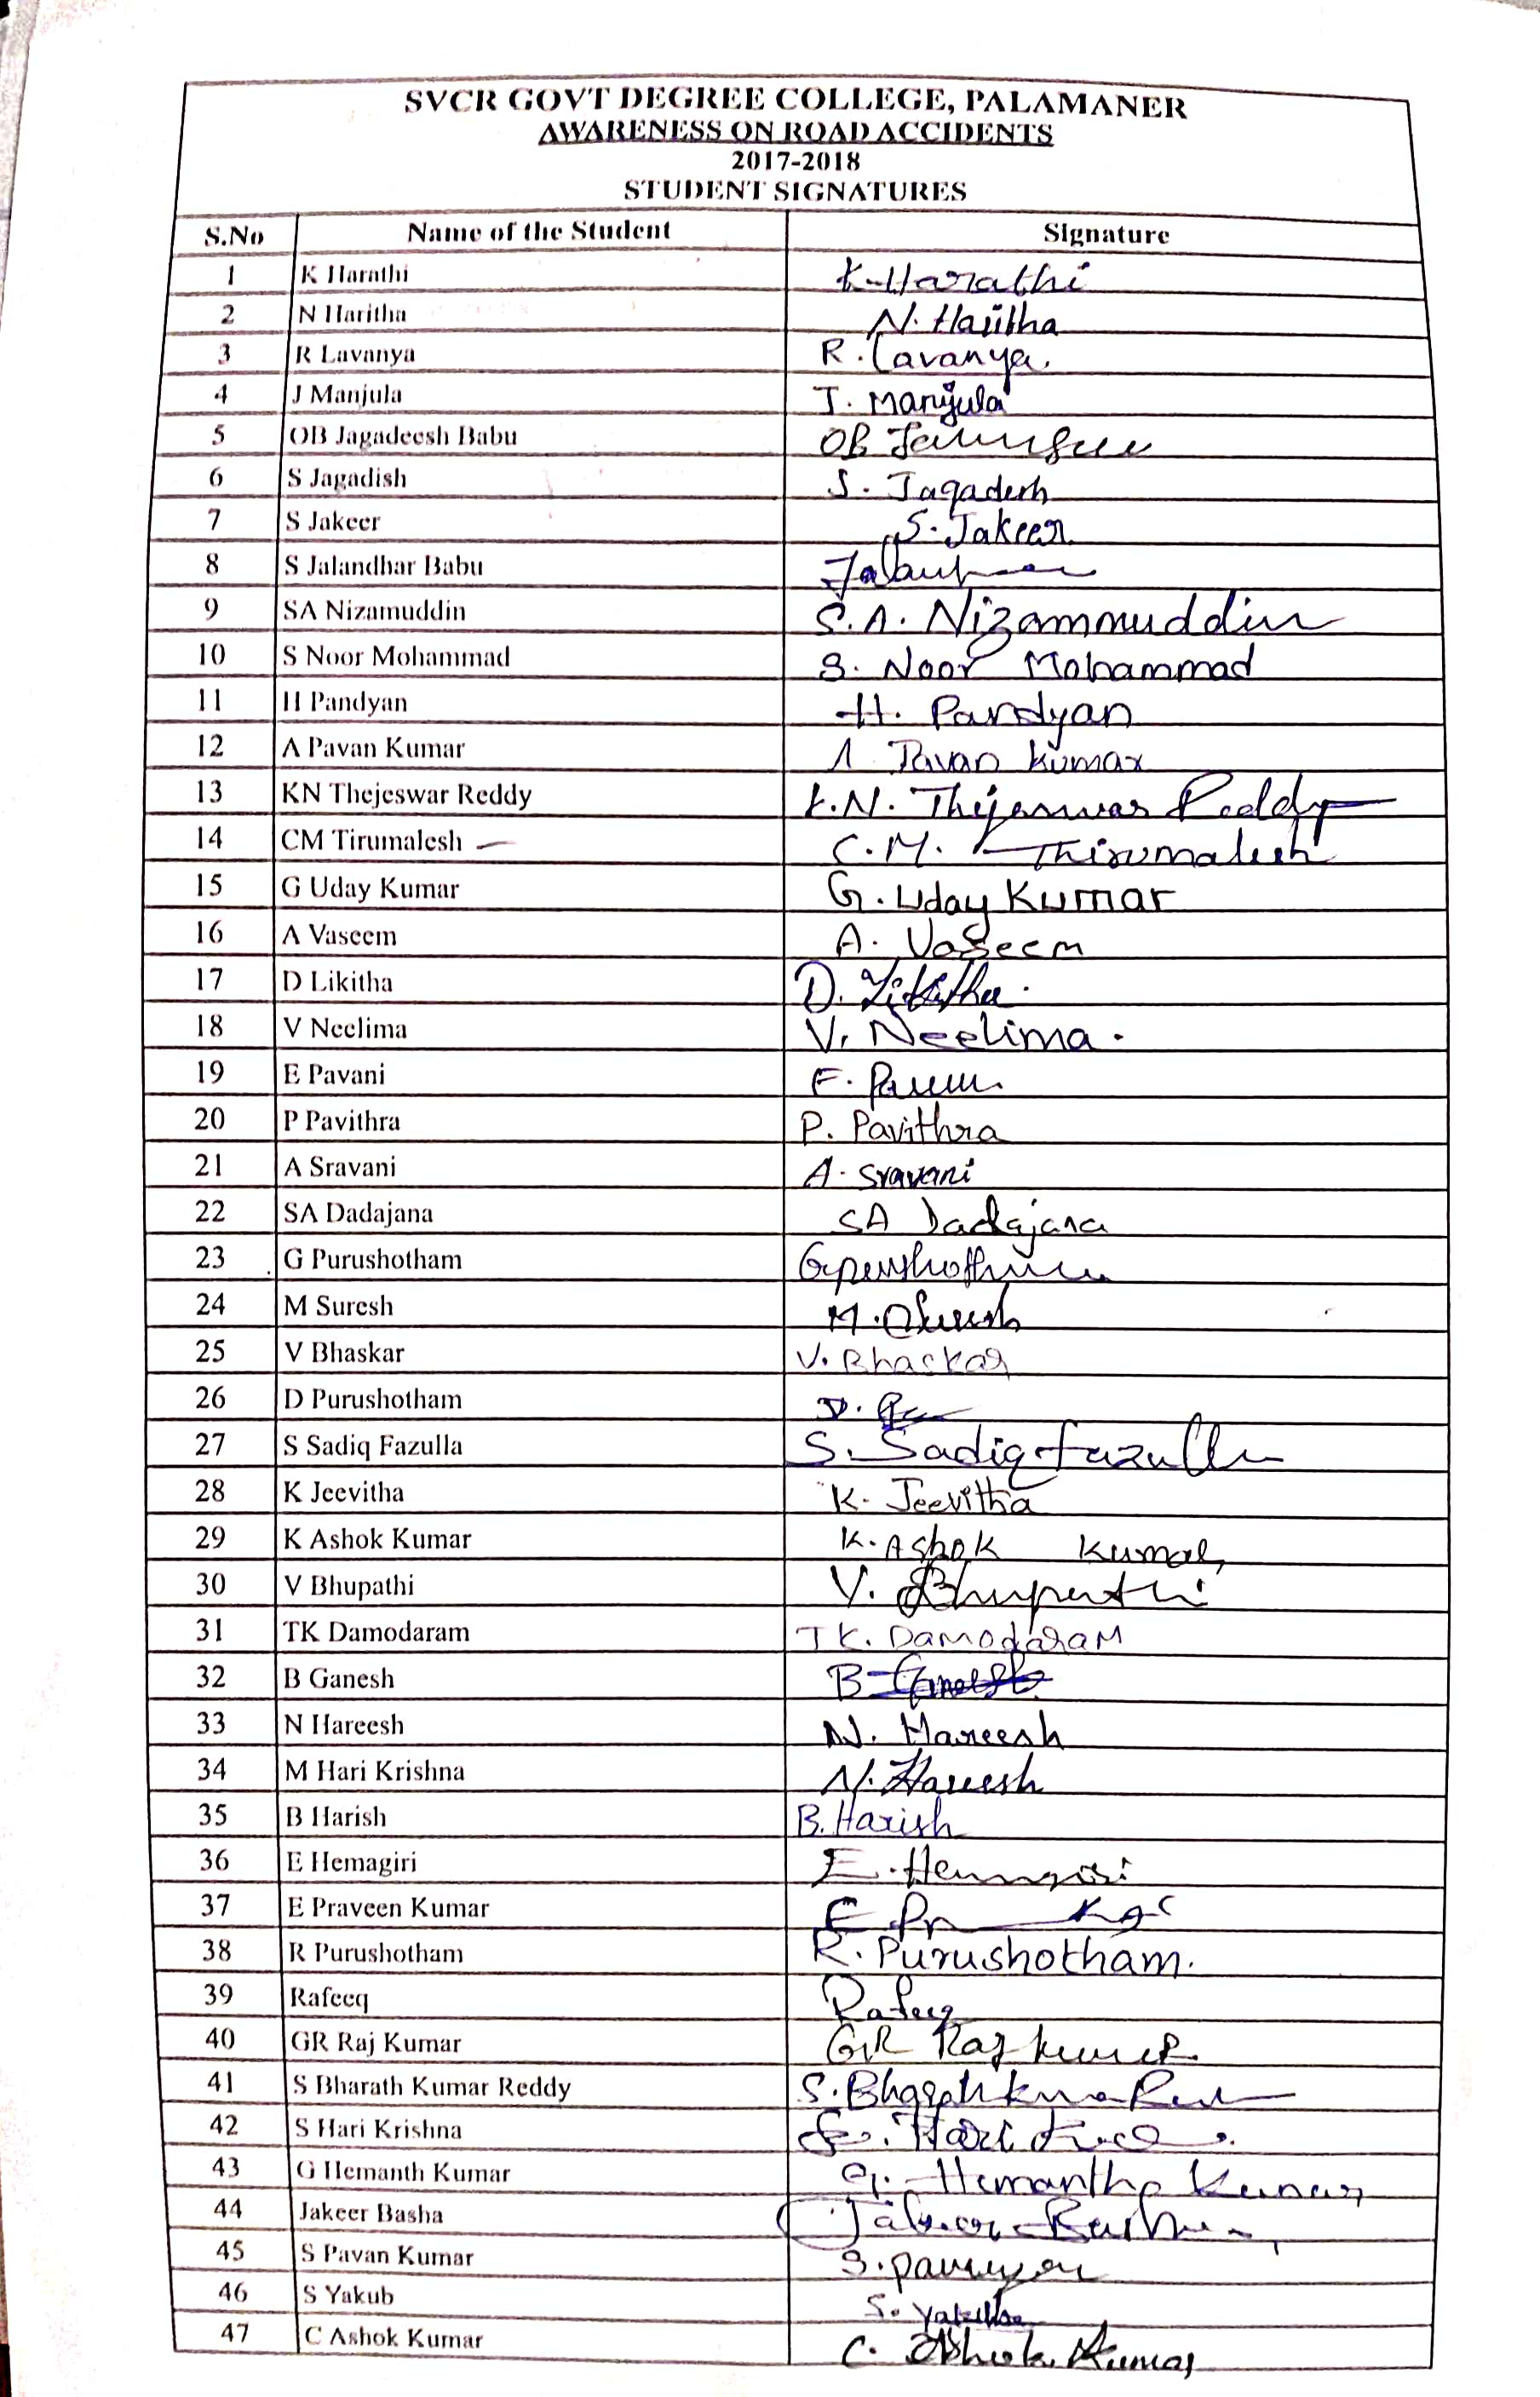 SVCR GOVT DEGREE COLLEGE, PALAMANER
AWARENESS ON ROAD ACCIDENTS
2017-2018
STUDENT SIGNATURES
S.No Name of the Student Signature
1 K Harathi K. Harathi
2 N Haritha N. Haritha
3 R Lavanya R. Lavanya.
4 J Manjula J. Manjula
5 OB Jagadeesh Babu OB
6 S Jagadish S. Jagadesh
7 S Jakeer S. Jakeer
8 S Jalandhar Babu
9 SA Nizamuddin S.A. Nizammuddin
10 S Noor Mohammad S. Noor Mohammad
11 H Pandyan H. Pandyan
12 A Pavan Kumar A Pavan Kumar
13 KN Thejeswar Reddy K.N. Thejeswar Reddy
14 CM Tirumalesh C.M. Thirumalesh
15 G Uday Kumar G. Uday Kumar
16 A Vaseem A. Vaseem
17 D Likitha D. Likitha.
18 V Neelima V. Neelima.
19 E Pavani E.
20 P Pavithra P. Pavithra
21 A Sravani A. Sravani
22 SA Dadajana SA Dadajana
23 G Purushotham
24 M Suresh M. Suresh
25 V Bhaskar V. Bhaskar
26 D Purushotham D.
27 S Sadiq Fazulla S. Sadiq Fazulla
28 K Jeevitha K. Jeevitha
29 K Ashok Kumar K. Ashok Kumar
30 V Bhupathi V. Bhupathi
31 TK Damodaram TK. Damodaram
32 B Ganesh B Ganesh
33 N Hareesh N. Hareesh
34 M Hari Krishna N. Hareesh
35 B Harish B. Harish
36 E Hemagiri E. Hemagiri
37 E Praveen Kumar E
38 R Purushotham R. Purushotham.
39 Rafeeq Rafeeq
40 GR Raj Kumar GR Raj Kumar
41 S Bharath Kumar Reddy S. Bharath
42 S Hari Krishna S. Hari
43 G Hemanth Kumar G. Hemantha Kumar
44 Jakeer Basha
45 S Pavan Kumar S.
46 S Yakub S.
47 C Ashok Kumar C. Ashok Kumar